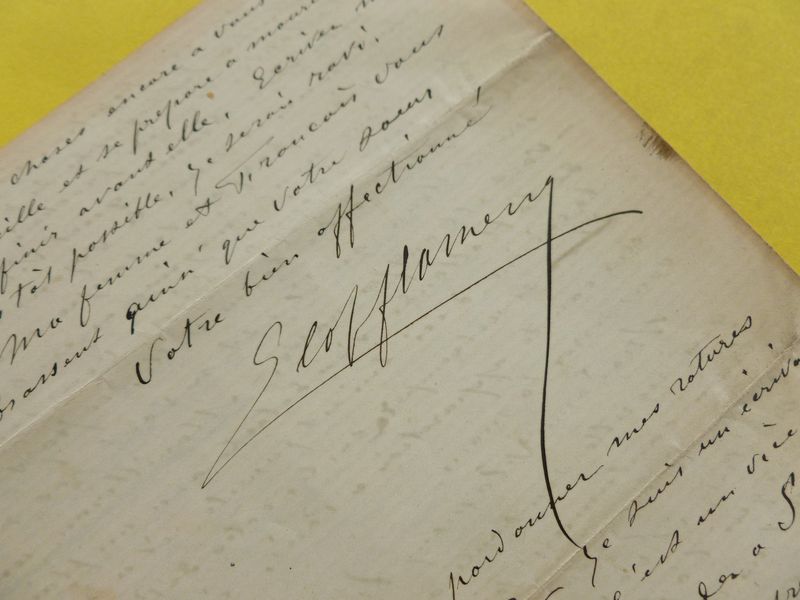 choses encore à vous
eille et se prépare à mouri
finir avant elle. Ecrivez
tôt possible. Je serais ravi.
Ma femme et François vous
brassent ainsi que votre soeur
Votre bien affectionné
Leop flameng
pardonner mes ratures
Je suis un écriva
c'est un vice